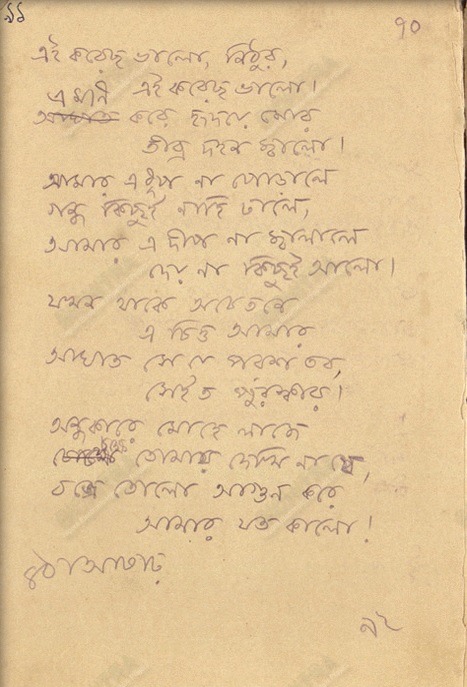 ৯১
৭০
এই করেছ ভালো, নিঠুর,
এই করেছ ভালো।
এমনি
করে হৃদয়ে মোর
তীব্র দহন জ্বালো।
আমার এ ধূপ না পোড়ালে
গন্ধ কিছুই নাহি ঢালে,
আমার এ দীপ না জ্বালালে
দেয় না কিছুই আলো।
যখন থাকে অচেতনে
এ চিত্ত আমার
আঘাত সে যে পরশ তব,
সেইত পুরস্কার।
অন্ধকারে মোহে লাজে
চোখে তোমায় দেখি না যে,
বজ্রে তোলো আগুন করে
আমার যত কালো!
৪ঠা আষাঢ়